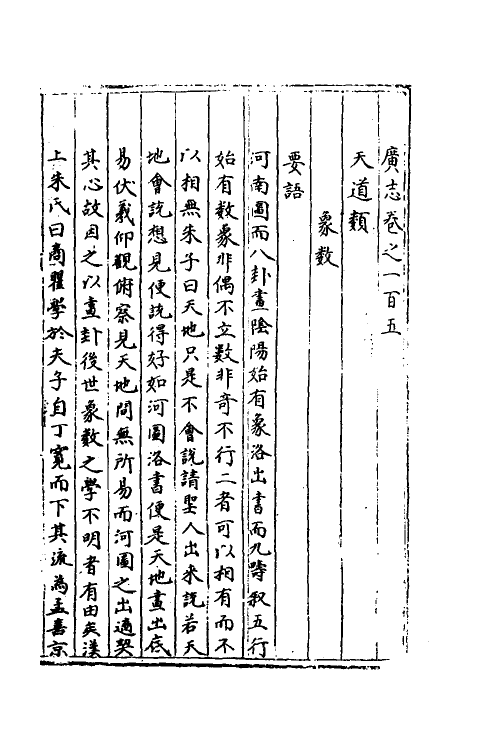 廣志卷之一百五
天道類
象數
要語
河南圖而八卦畫陰陽始有象洛出書而九疇叙五行
始有數象非偶不立數非奇不行二者可以相有而不
以相無朱子曰天地只是不會說請聖人出來說若天
地會說想見便說得好如河圖洛書便是天地畫出底
易伏羲仰觀俯察見天地間無所易而河圖之出適契
其心故因之以畫卦後世象數之學不明者有由矣漢
上朱氏曰商瞿學於夫子自丁寬而下其流為孟喜京